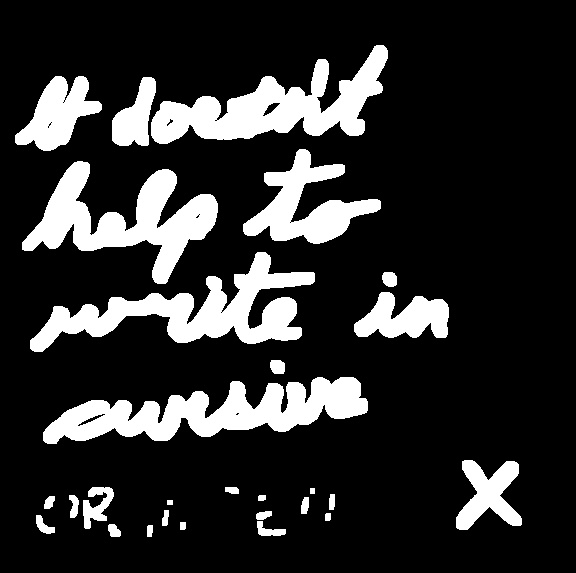 It doesn't
help to
write in
cursive
X